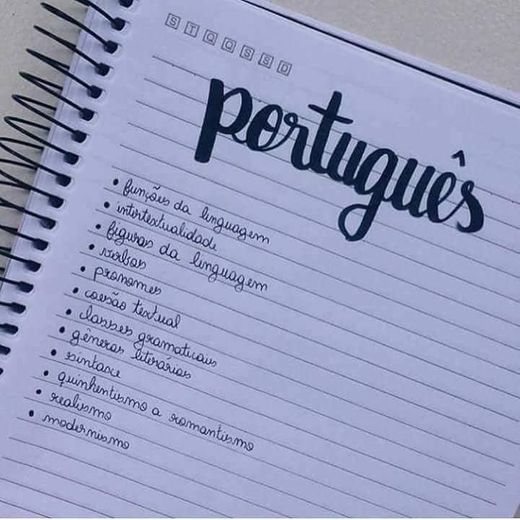 S T Q Q S S D
português
• funções da linguagem
• intertextualidade
• figuras da linguagem
• verbos
• pronomes
• coesão textual
• classes gramaticais
• gêneros literários
• sintaxe
• quinhentismo a romantismo
• realismo
• modernismo